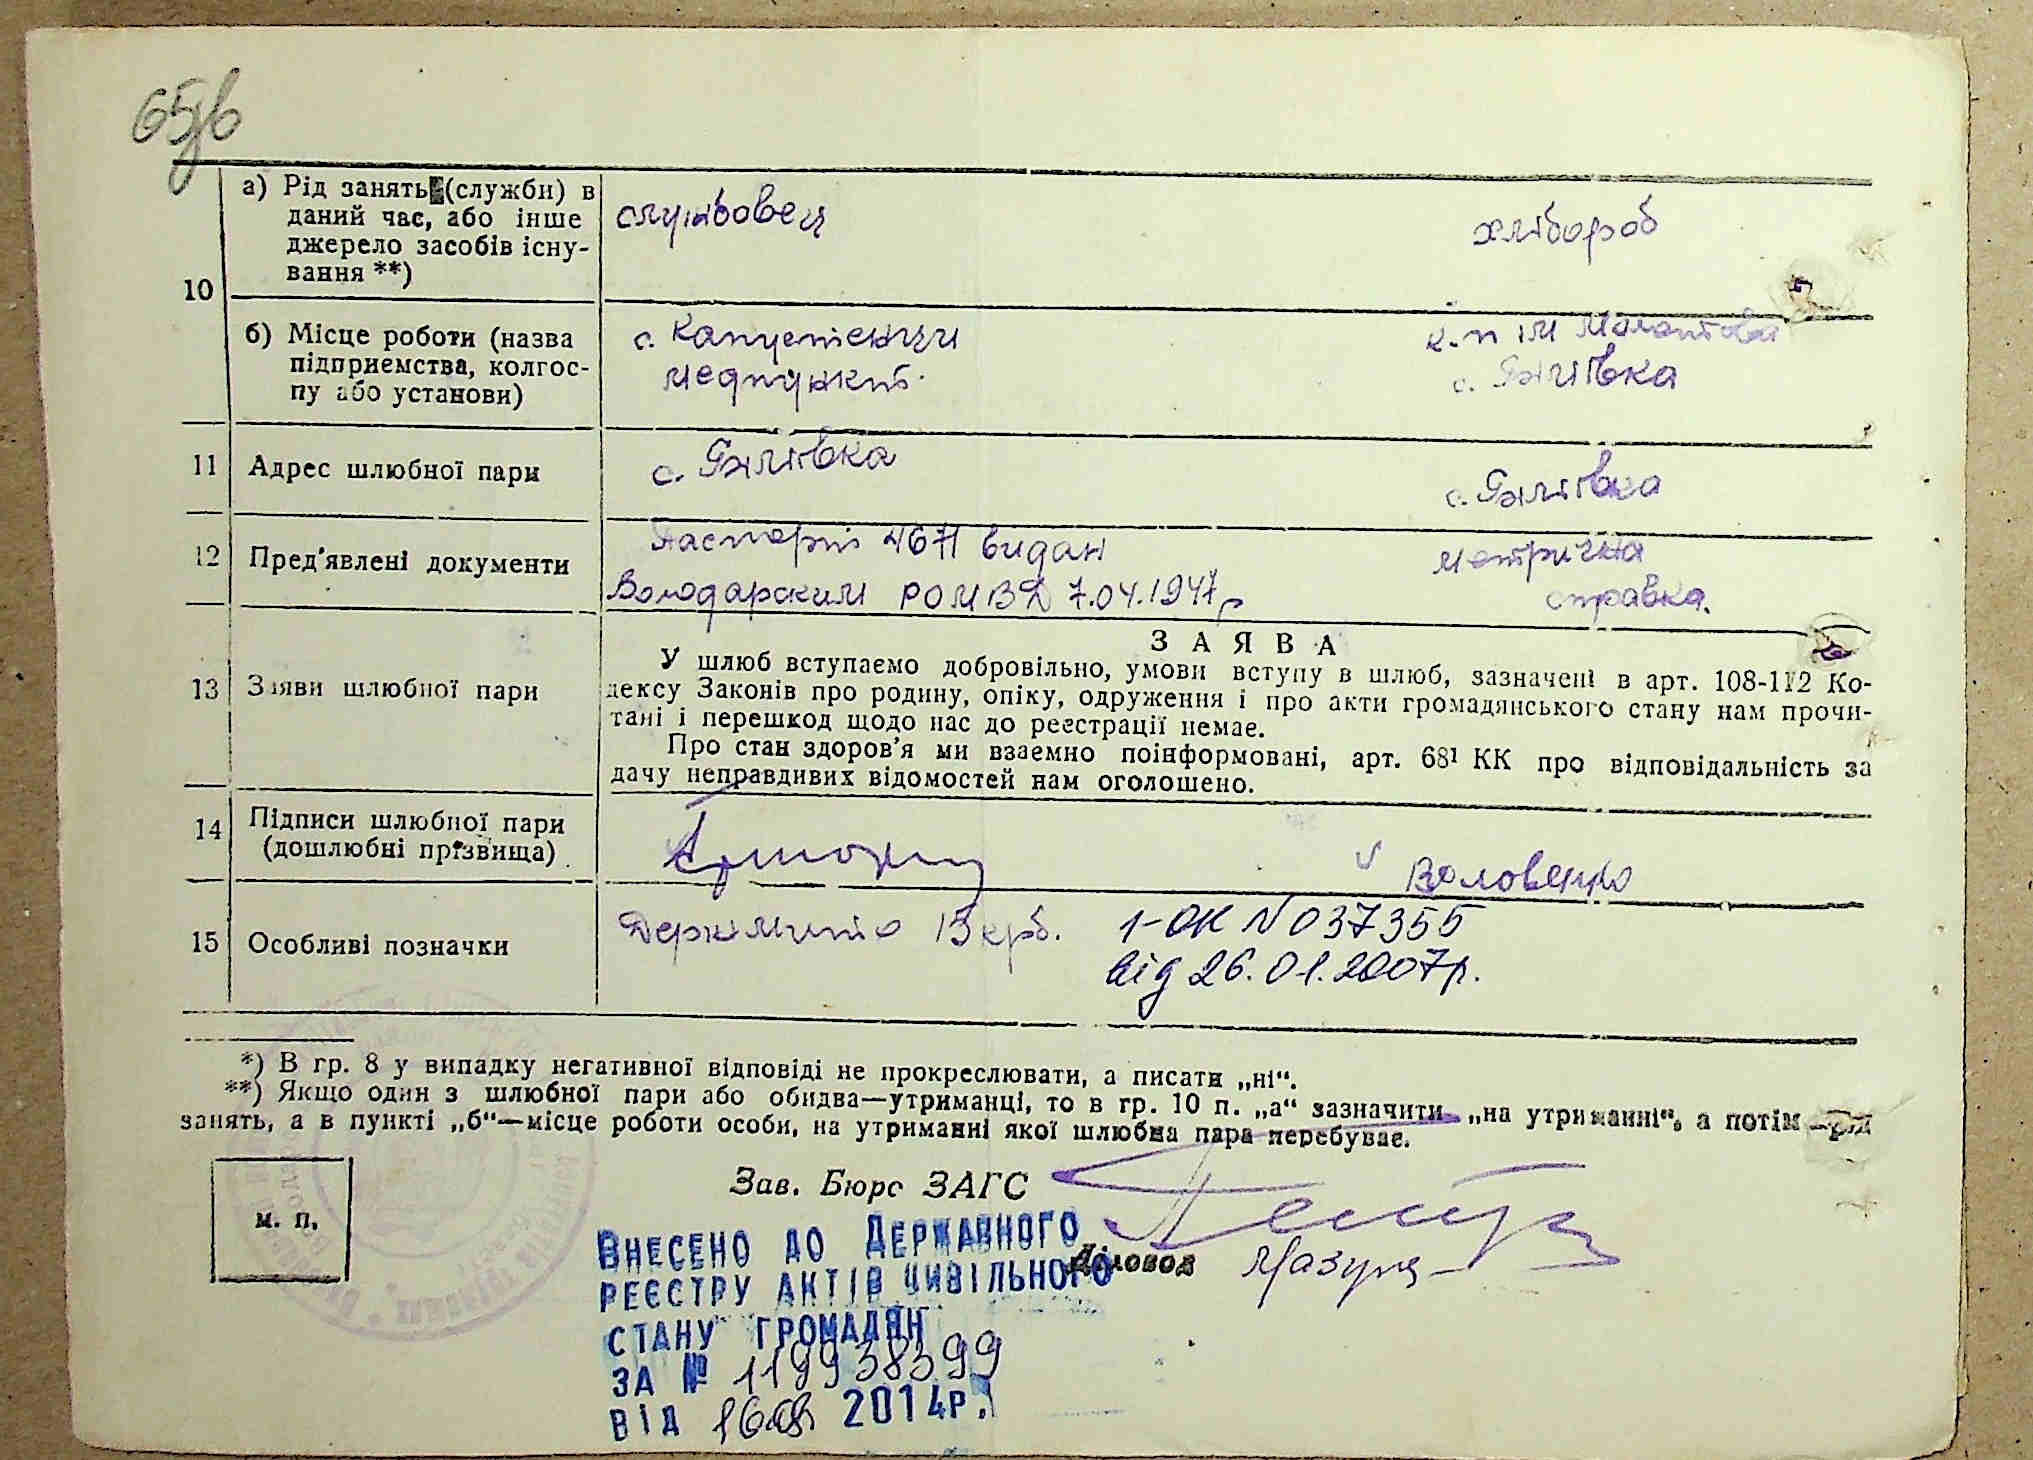 10
а) Рід занять (служби) в
даний час, або інше
джерело засобів існу-
вання **)
службовец
хлібороб
б) Місце роботи (назва
підприємства, колгос-
пу або установи)
с. Капустенци
медпункт.
к-п ім Молотова
с. Яхлівка
11
Адрес шлюбної пари
с. Яхлівка
с. Яхлівка
12
Пред'явлені документи
Паспорт 4671 видан
Володарским РОМВД 7.04.1947р
метрична
справка.
13
Заяви шлюбної пари
ЗАЯВА
У шлюб вступаємо добровільно, умови вступу в шлюб, зазначені в арт. 108-112 Ко-
дексу Законів про родину, опіку, одруження і про акти громадянського стану нам прочи-
тані і перешкод щодо нас до реєстрації немає.
Про стан здоров'я ми взаємно поінформовані, арт. 68¹ КК про відповідальність за
дачу неправдивих відомостей нам оголошено.
14
Підписи шлюбної пари
(дошлюбні прізвища)
Воловенко
15
Особливі позначки
Держмито 15 крб.
1-ОК N 037355
від 26.01.2007р.
*) В гр. 8 у випадку негативної відповіді не прокреслювати, а писати „ні“.
**) Якщо один з шлюбної пари або обидва—утриманці, то в гр. 10 п. „а“ зазначити „на утриманні“, а потім—рід
занять, а в пункті „б“—місце роботи особи, на утриманні якої шлюбна пара перебуває.
м. п.
Зав. Бюро ЗАГС
Діловод Мазур
ВНЕСЕНО ДО ДЕРЖАВНОГО
РЕЄСТРУ АКТІВ ЦИВІЛЬНОГО
СТАНУ ГРОМАДЯН
ЗА № 119938399
ВІД 2014Р.